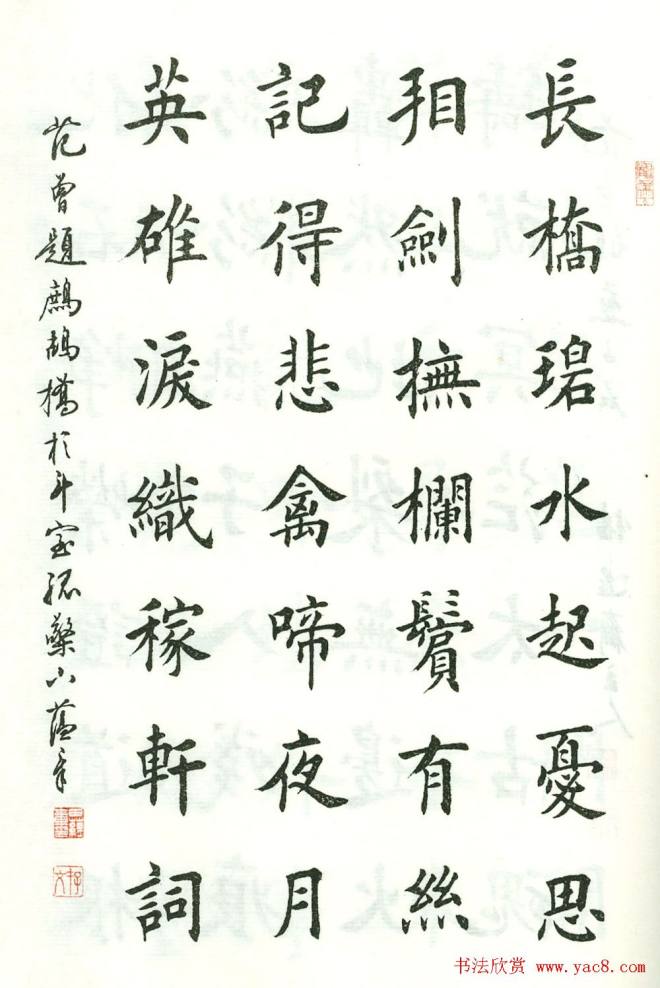 長橋碧水起憂思
拍劍撫欄鬢有絲
記得悲禽啼夜月
英雄淚織稼軒詞
范曾題鷓鴣橋於斗室孤檠下蘊章
书法欣赏 www.yac8.com